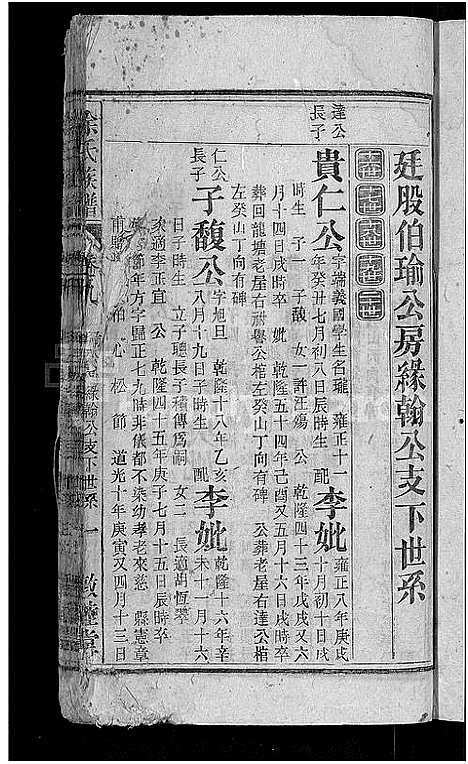 廷股伯瑜公房緣翰公支下世系
達公
長子
貴仁公
字端義國學生名瓏 雍正十一
年癸丑七月初八日辰時生 配
李妣
雍正八年庚戌
十月初十日戌
時生 子一 子馥 女一許汪殤 公 乾隆四十三年戊戌又六
月十四日戌時卒 妣 乾隆五十四年己酉又五月十六日戌時卒
葬回龍塘老屋右 公棺左癸山丁向有碑 公葬老屋右達公棺
左癸山丁向有碑
仁公
長子
子馥公
字旭旦 乾隆十八年乙亥
八月十九日子時生 配
李妣
乾隆十六年辛
未十一月十六
日子時生 立子聰長子積傳爲嗣 女二 長適胡恆攀
次適李正宜 公 乾隆四十五年庚子七月十五日辰時卒
享年方字歸正七九時非儀都不染幼孝老來慈 縣憲章
柏心松節 道光十年庚寅又四月十三日
徐氏族譜
卷九
緣翰公支下世系
一
敦 堂